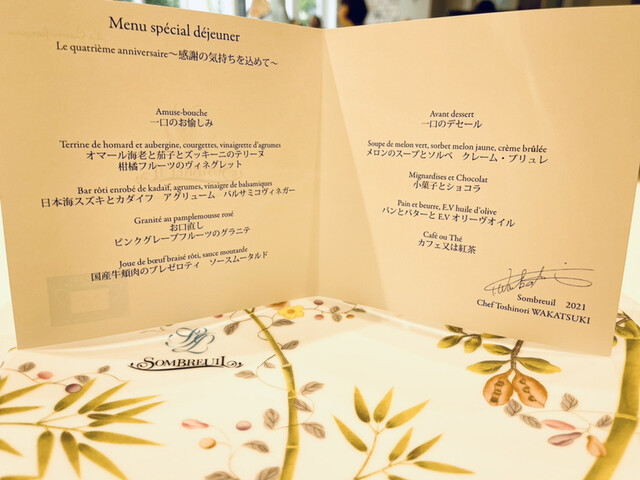 Menu spécial déjeuner
Le quatrième anniversaire～感謝の気持ちを込めて～
Amuse-bouche
一口のお愉しみ
Terrine de homard et aubergine, courgettes, vinaigrette d'agrumes
オマール海老と茄子とズッキーニのテリーヌ
柑橘フルーツのヴィネグレット
Bar rôti enrobé de kadaïf, agrumes, vinaigre de balsamiques
日本海スズキとカダイフ　アグリューム　バルサミコヴィネガー
Granité au pamplemousse rosé
お口直し
ピンクグレープフルーツのグラニテ
Joue de bœuf braisé rôti, sauce moutarde
国産牛頬肉のブレゼロティ　ソースムータルド
Avant dessert
一口のデセール
Soupe de melon vert, sorbet melon jaune, crème brûlée
メロンのスープとソルベ　クレーム・ブリュレ
Mignardises et Chocolat
小菓子とショコラ
Pain et beurre, E.V huile d'olive
パンとバターと E.V オリーヴオイル
Café ou Thé
カフェ又は紅茶
Sombreuil　2021
Chef Toshinori WAKATSUKI
SOMBREUIL